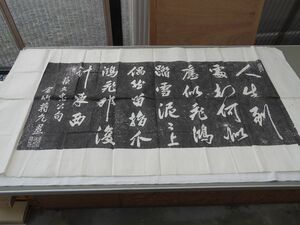 人生到
處知何似
應似飛鴻
踏雪泥々上
偶然留指爪
鴻飛那復
計東西